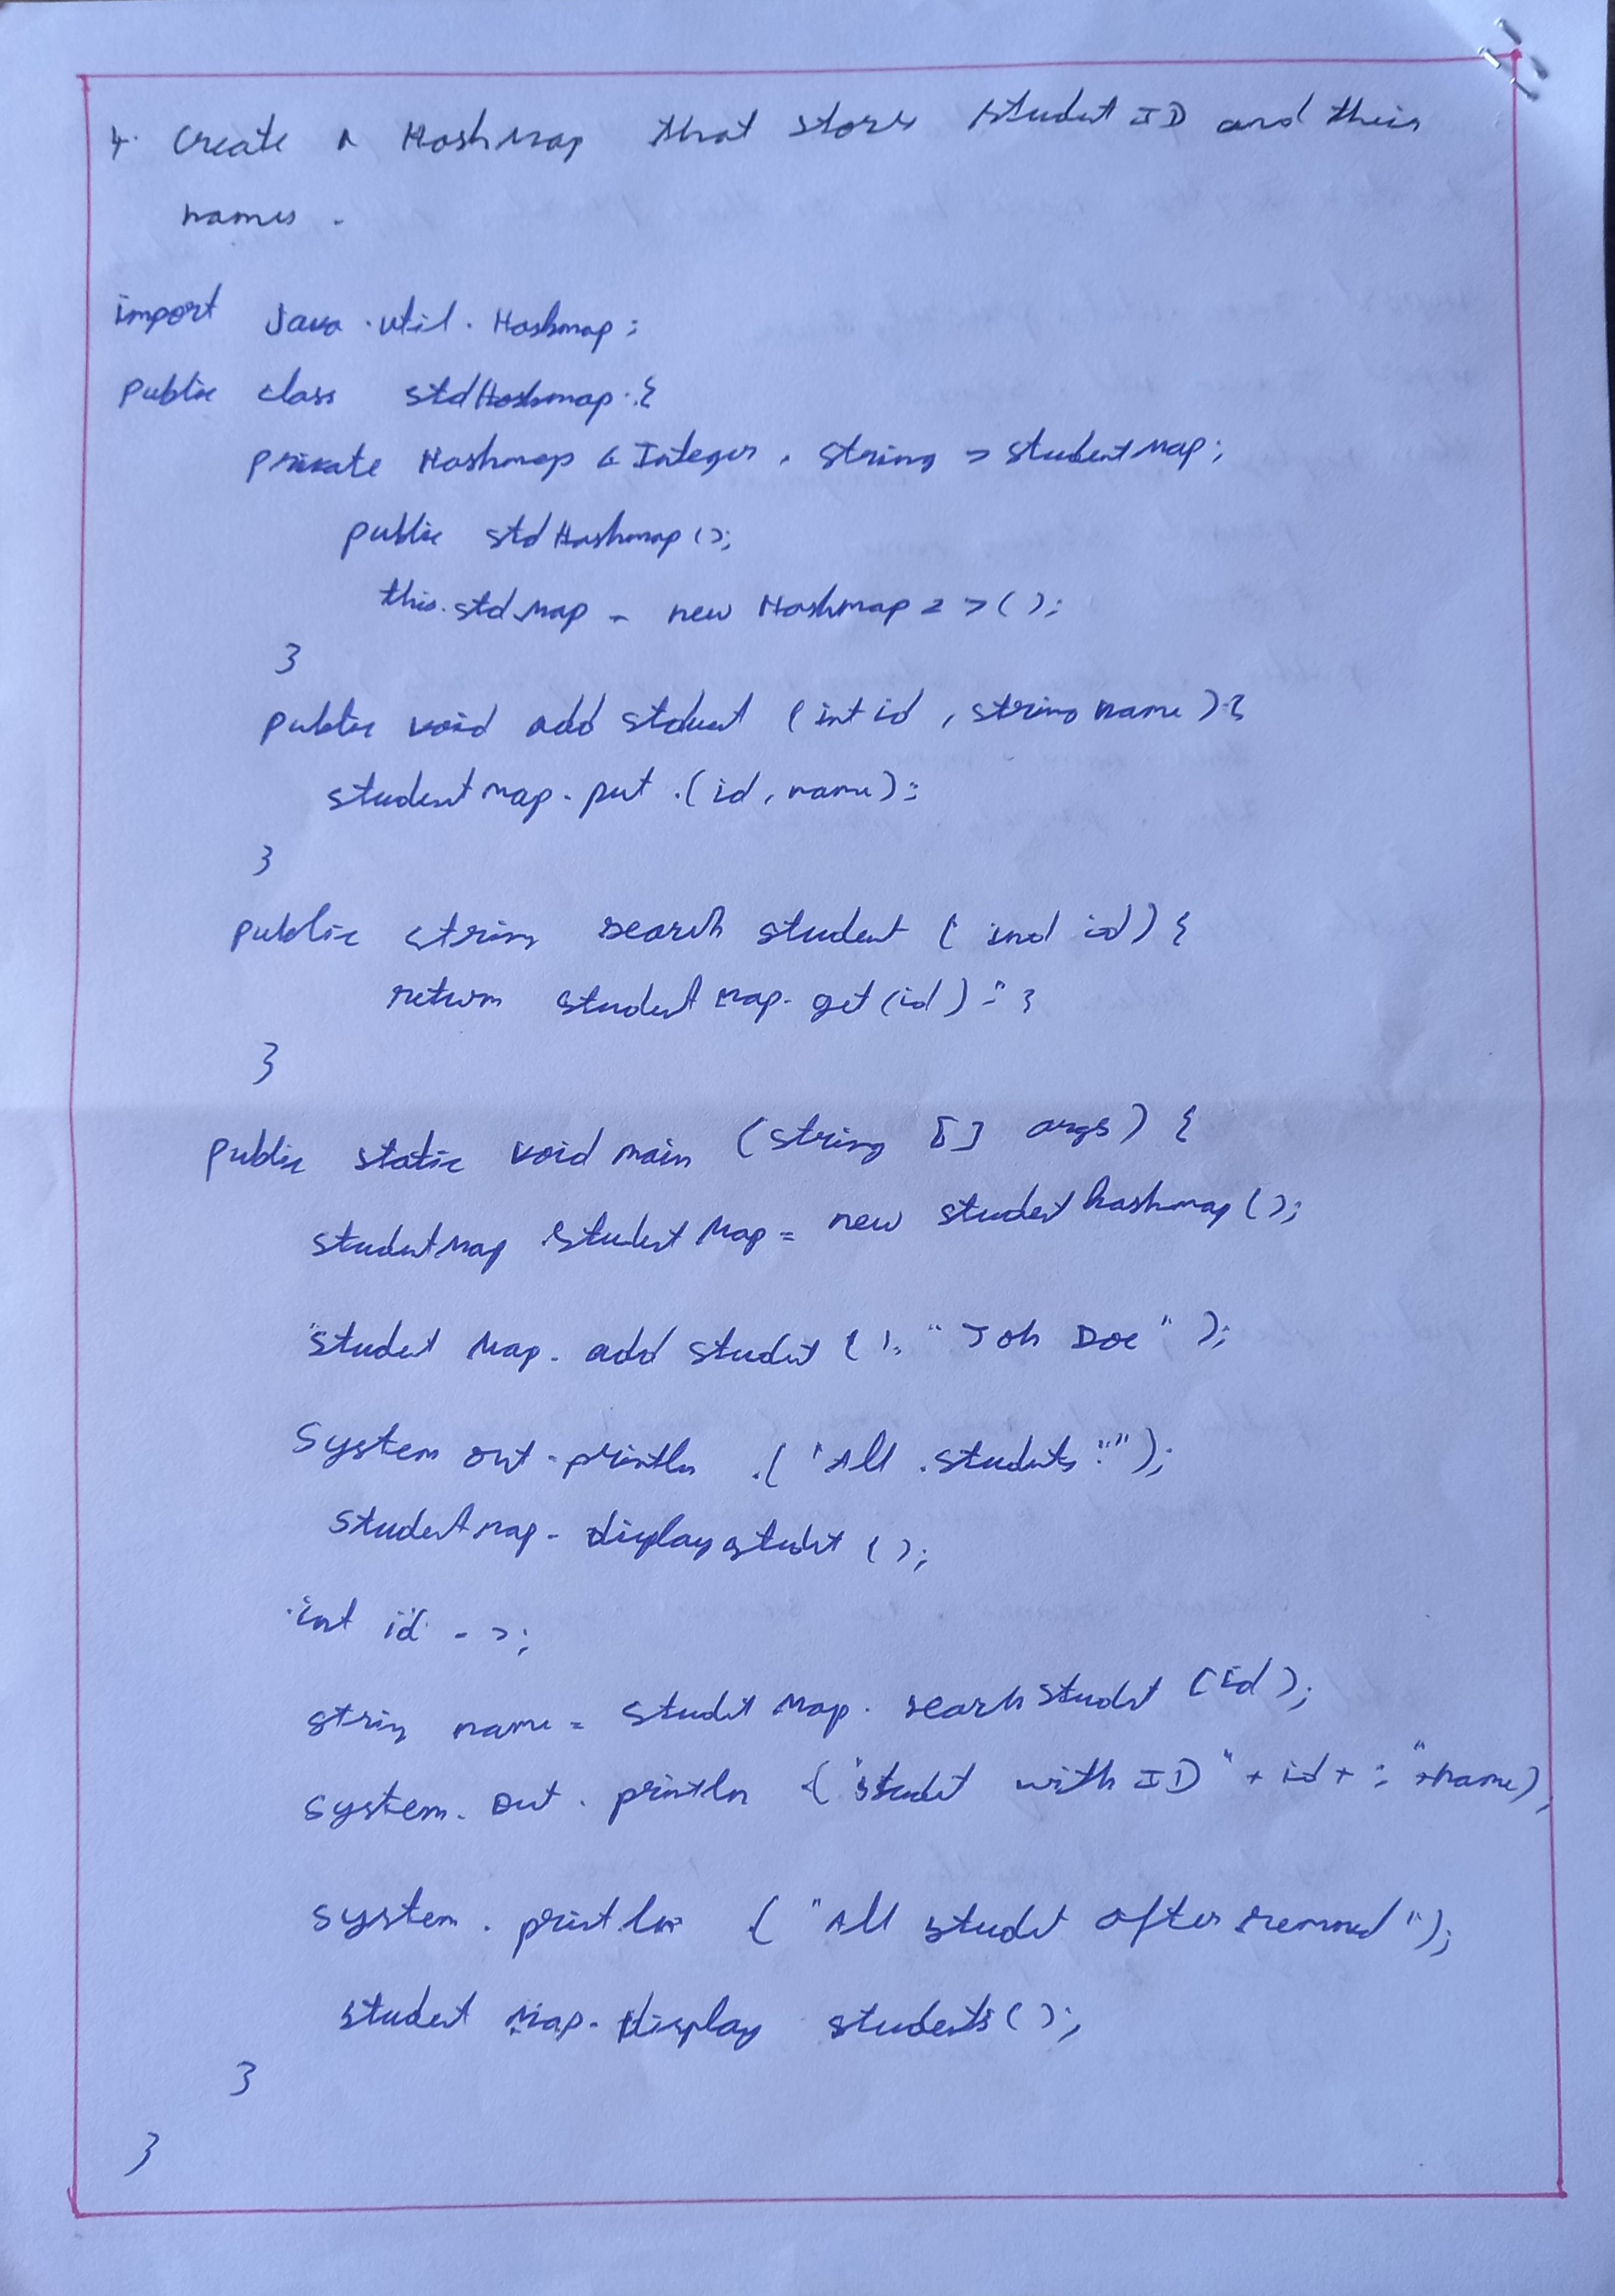 4. Create a HashMap that store student ID and their
names.
import Java.util.Hashmap;
public class stdHashmap {
private Hashmap < Integer, String > studentMap;
public stdHashmap ();
this.stdMap = new Hashmap < > ();
}
public void add student (int id, string name) {
studentmap.put.(id, name);
}
public string search student (int id) {
return student map.get (id); }
}
public static void main (string [] args) {
studentMap studentMap = new studenthashmap ();
student Map. add student (1, "Joh Doe");
System out.println ("All students:");
studentmap. display student ();
int id = >;
string name = student Map. search student (id);
system. out. println ("student with ID" + id + : "+name),
system. println ("All studet after removed");
student Map. display students ();
}
}